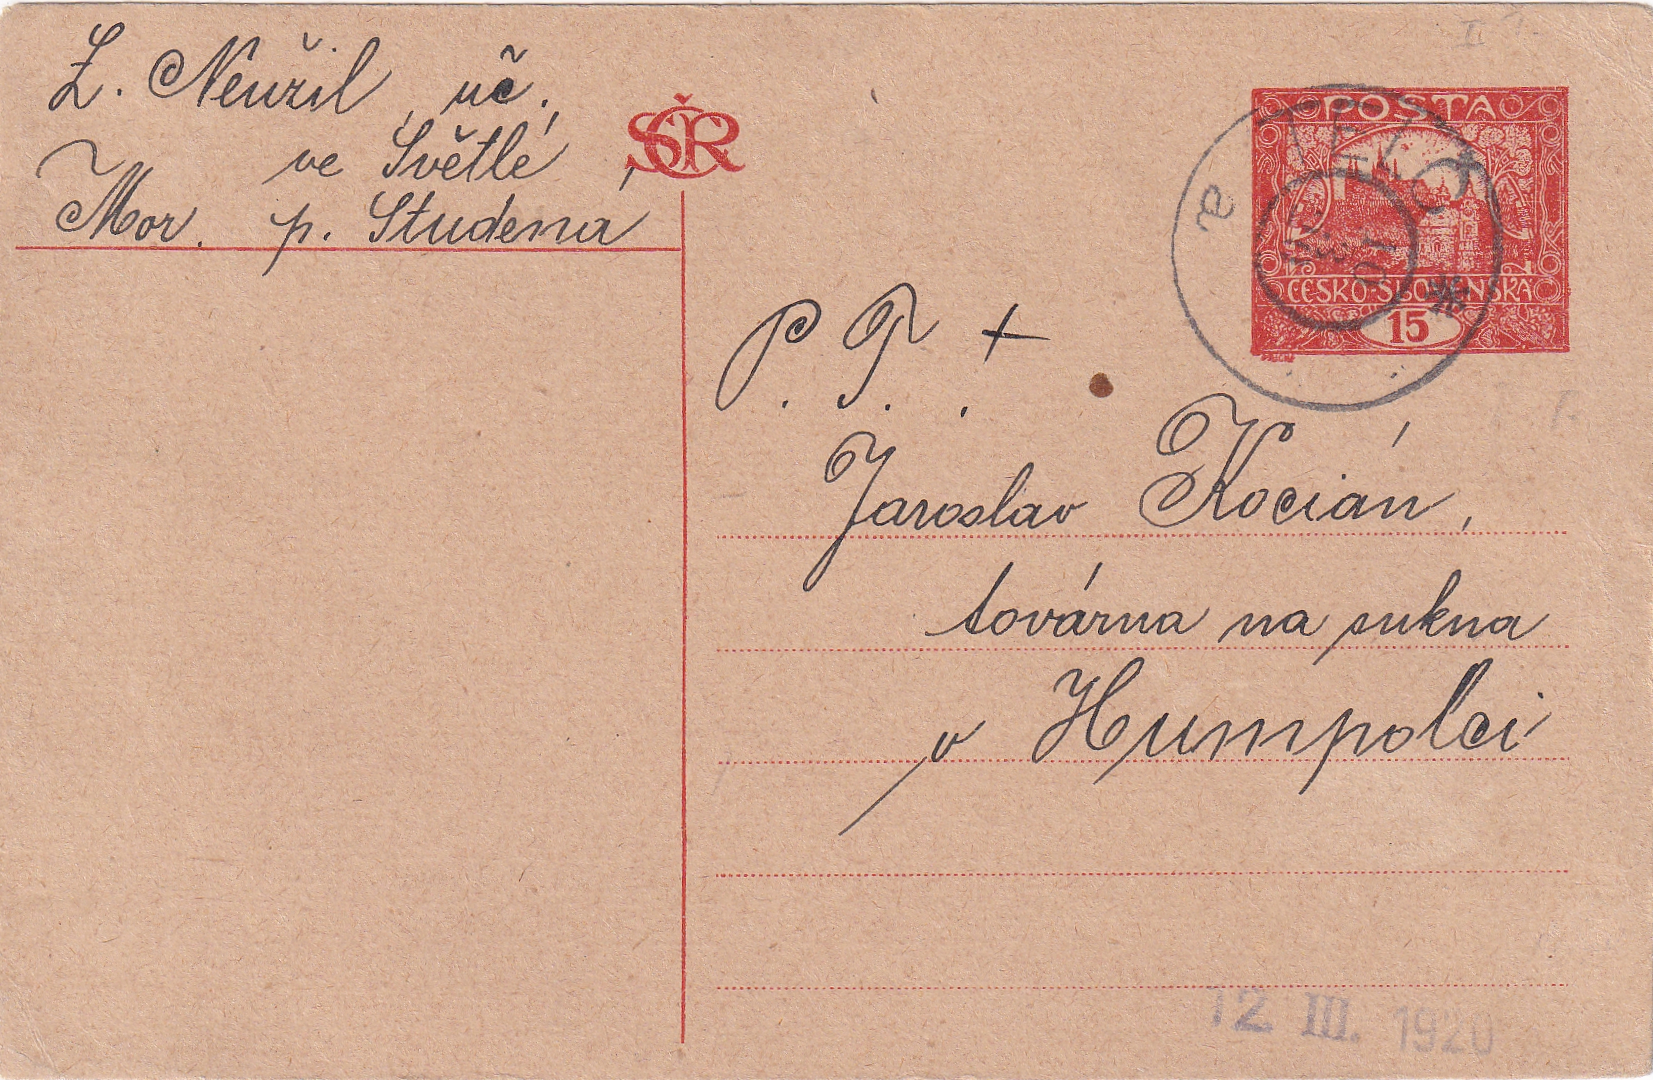 Z. Neužil, uč.
ve Světlé,
Mor. p. Studena
SČR
POSTA
TELČ
ČESKO-SLOVENSKA
15
P. T. +
Jaroslav Kocián,
továrna na sukna
v Humpolci
12. III. 1920